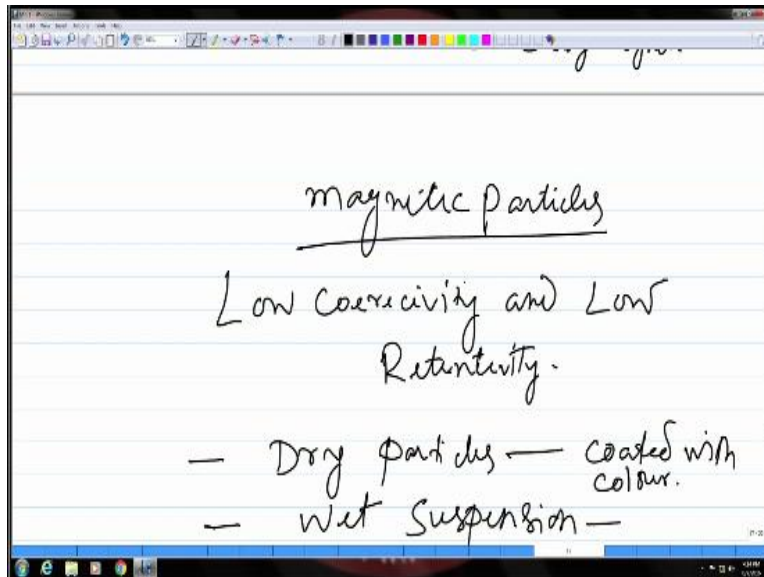 Magnetic Particles
Low Coerecivity and Low
Retentivity.
- Dry Particles — coated with
colour.
- Wet Suspension —